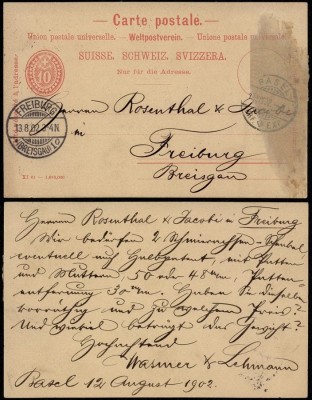 Carte postale.
Union postale universelle. — Weltpostverein. — Unione postale universale.
SUISSE. SCHWEIZ. SVIZZERA.
Nur für die Adresse.
10
FREIBURG
13.8.02.3-4N
(BREISGAU)
BASEL
Herren Rosenthal &
in
Freiburg
Breisgau
Herren Rosenthal & Jacobi in Freiburg
Wir bedürfen 2
eventuell mit
und Muttern, 50 oder 48 m/m,
entfernung 30 m/m. Haben Sie dieselben
vorrätig und zu welchem Preis?
Und wieviel beträgt das Gewicht?
Hochachtend
Wasmer & Lehmann
Basel 12 August 1902.